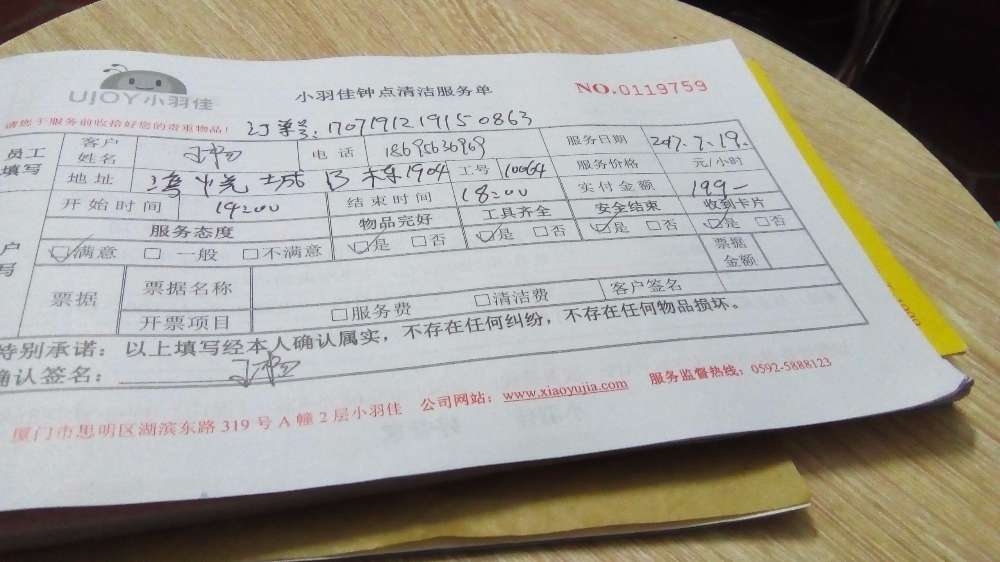 UJOY小羽佳
小羽佳钟点清洁服务单
NO.0119759
请您于服务前收拾好您的贵重物品！ 订单号:1707191219150863
员工填写 客户姓名 电话 18695636969 服务日期 2017.7.19.
地址 湾悦城B栋1904 工号 10064 服务价格 元/小时
开始时间 14:00 结束时间 18:00 实付金额 199-
服务态度 物品完好 工具齐全 安全结束 收到卡片
满意 一般 不满意 是 否 是 否 是 否 是 否
票据 票据名称 客户签名 票据金额
开票项目 服务费 清洁费
特别承诺：以上填写经本人确认属实，不存在任何纠纷，不存在任何物品损坏。
确认签名：
厦门市思明区湖滨东路319号A幢2层小羽佳 公司网站：www.xiaoyujia.com 服务监督热线：0592-5888123